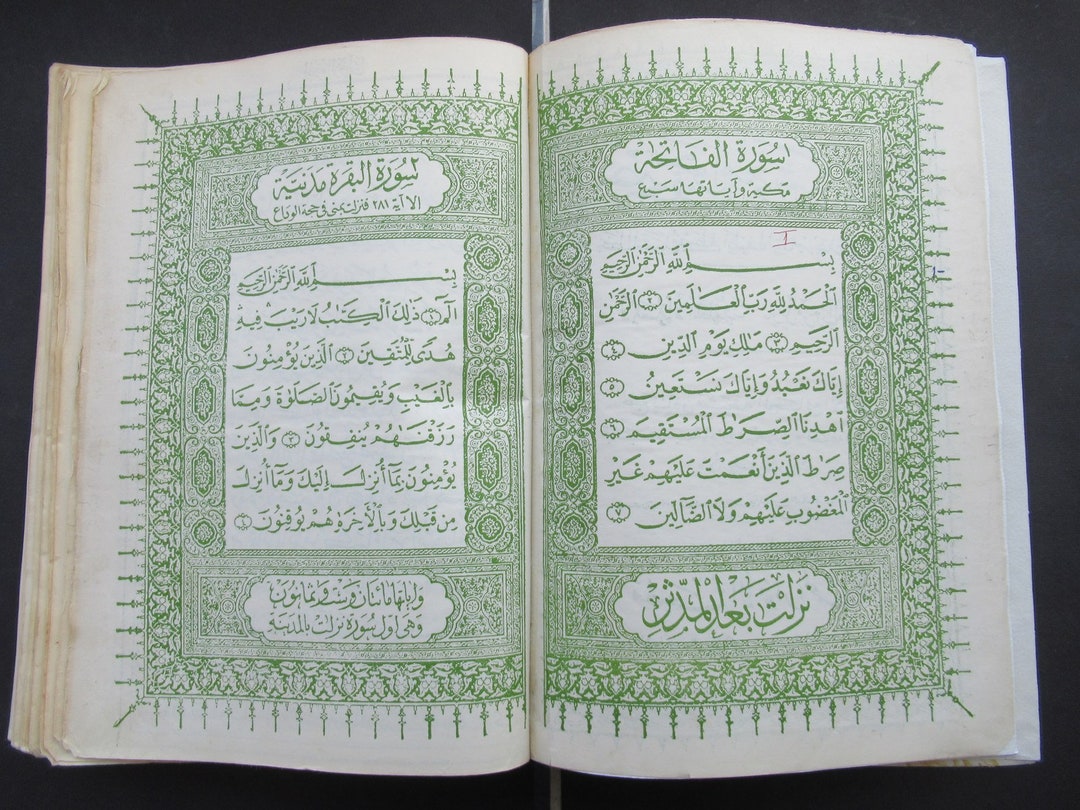 سورة الفاتحة
مكية وآياتها سبع
I
بِسْمِ ٱللَّهِ ٱلرَّحْمَٰنِ ٱلرَّحِيمِ
ٱلْحَمْدُ لِلَّهِ رَبِّ ٱلْعَٰلَمِينَ ٢ ٱلرَّحْمَٰنِ
ٱلرَّحِيمِ ٣ مَٰلِكِ يَوْمِ ٱلدِّينِ ٤
إِيَّاكَ نَعْبُدُ وَإِيَّاكَ نَسْتَعِينُ ٥
ٱهْدِنَا ٱلصِّرَٰطَ ٱلْمُسْتَقِيمَ ٦
صِرَٰطَ ٱلَّذِينَ أَنْعَمْتَ عَلَيْهِمْ غَيْرِ
ٱلْمَغْضُوبِ عَلَيْهِمْ وَلَا ٱلضَّآلِّينَ ٧
نزلت بعد المدثر
سورة البقرة مدنية
الا آية ٢٨١ فنزلت بمنى في حجة الوداع
بِسْمِ ٱللَّهِ ٱلرَّحْمَٰنِ ٱلرَّحِيمِ
الٓمٓ ١ ذَٰلِكَ ٱلْكِتَٰبُ لَا رَيْبَ فِيهِ
هُدًى لِّلْمُتَّقِينَ ٢ ٱلَّذِينَ يُؤْمِنُونَ
بِٱلْغَيْبِ وَيُقِيمُونَ ٱلصَّلَوٰةَ وَمِمَّا
رَزَقْنَٰهُمْ يُنفِقُونَ ٣ وَٱلَّذِينَ
يُؤْمِنُونَ بِمَآ أُنزِلَ إِلَيْكَ وَمَآ أُنزِلَ
مِن قَبْلِكَ وَبِٱلْأَخِرَةِ هُمْ يُوقِنُونَ ٤
وآياتها مائتان وست وثمانون
وهي أول سورة نزلت بالمدينة